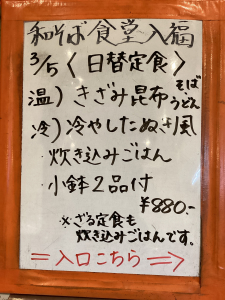 和そば食堂入福
3/5〈日替定食〉
温）きざみ昆布 そば うどん
冷）冷やしたぬき風
・炊き込みごはん
・小鉢2品付
¥880.-
※ざる定食も
炊き込みごはんです。
＝入口こちら⇒